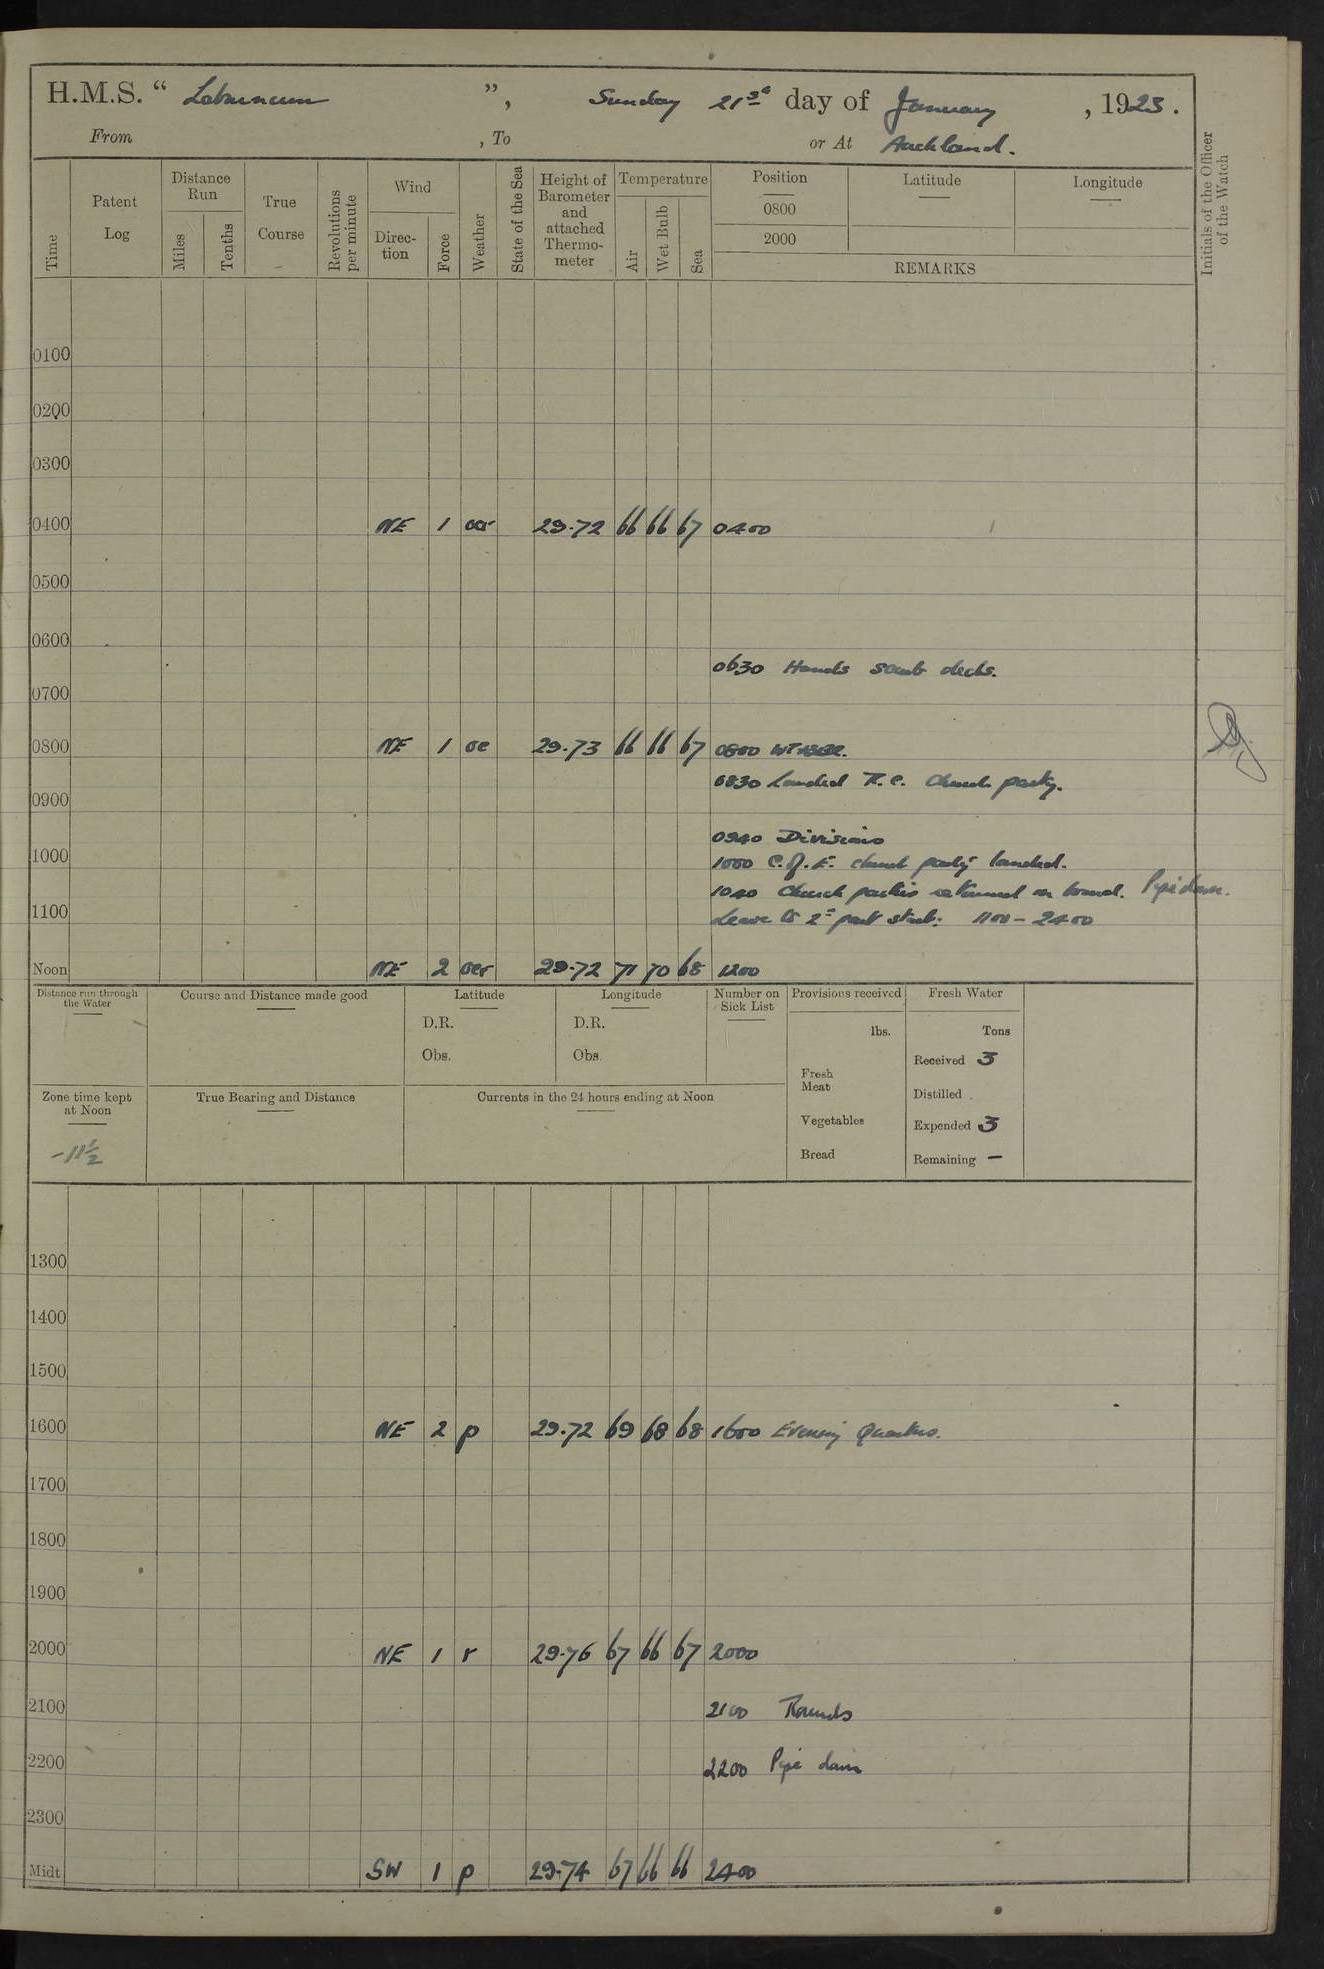 H.M.S. “ Laburnum ”, Sunday 21st day of January , 1923.
From , To or At Auckland.
Time
Patent Log
Distance Run
Miles
Tenths
True Course
Revolutions per minute
Wind
Direc-tion
Force
Weather
State of the Sea
Height of Barometer and attached Thermo-meter
Temperature
Air
Wet Bulb
Sea
Position
0800
2000
Latitude
Longitude
REMARKS
Initials of the Officer of the Watch
0100
0200
0300
0400 NE 1 29.72 66 66 67 0400
0500
0600
0630 Hands scrub decks.
0700
0800 NE 1 oe 29.73 66 66 67 0800
0830 Landed R.C. Church party.
0900
0940 Divisions
1000 1000 C. of E. church party landed.
1040 Church parties returned on board. Pipe down.
1100 Leave to 2nd part starb: 1100 - 2400
Noon NE 2 oer 29.72 71 70 68 1200
Distance run through the Water
Course and Distance made good
Latitude
D.R.
Obs.
Longitude
D.R.
Obs.
Number on Sick List
Provisions received
lbs.
Fresh Meat
Vegetables
Bread
Fresh Water
Tons
Received 3
Distilled
Expended 3
Remaining –
Zone time kept at Noon
-11½
True Bearing and Distance
Currents in the 24 hours ending at Noon
1300
1400
1500
1600 NE 2 p 29.72 69 68 68 1600 Evening Quarters.
1700
1800
1900
2000 NE 1 r 29.76 67 66 67 2000
2100 2100 Rounds
2200 2200 Pipe down
2300
Midt SW 1 p 29.74 67 66 66 2400